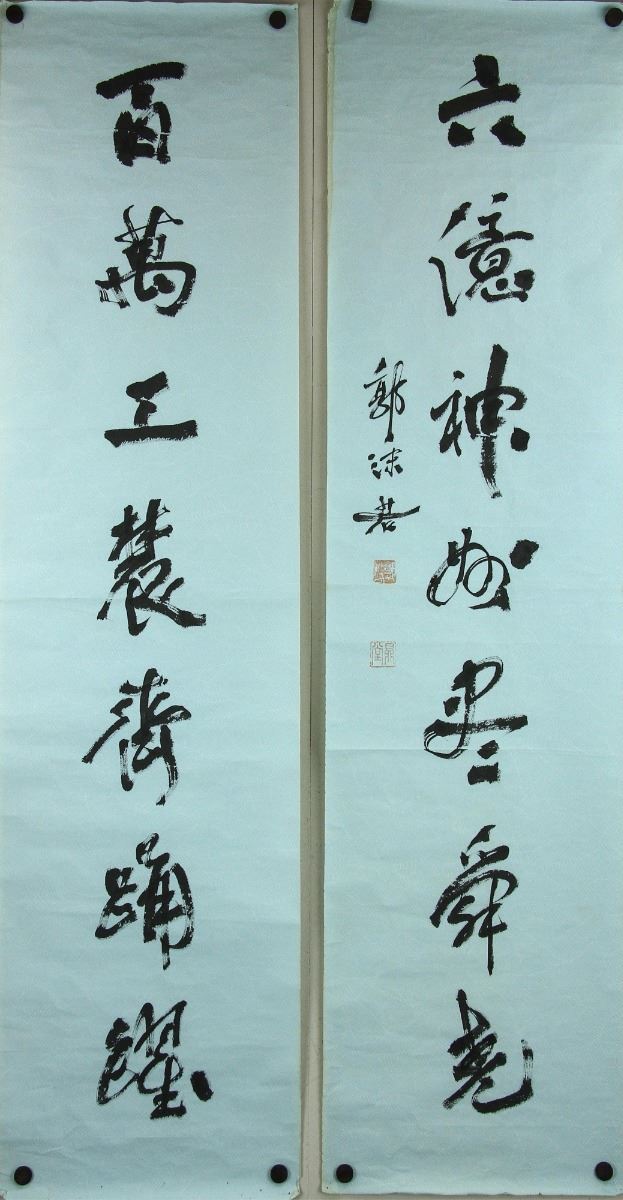 百萬工農齊踴躍
六億神州盡舜堯
郭沫若